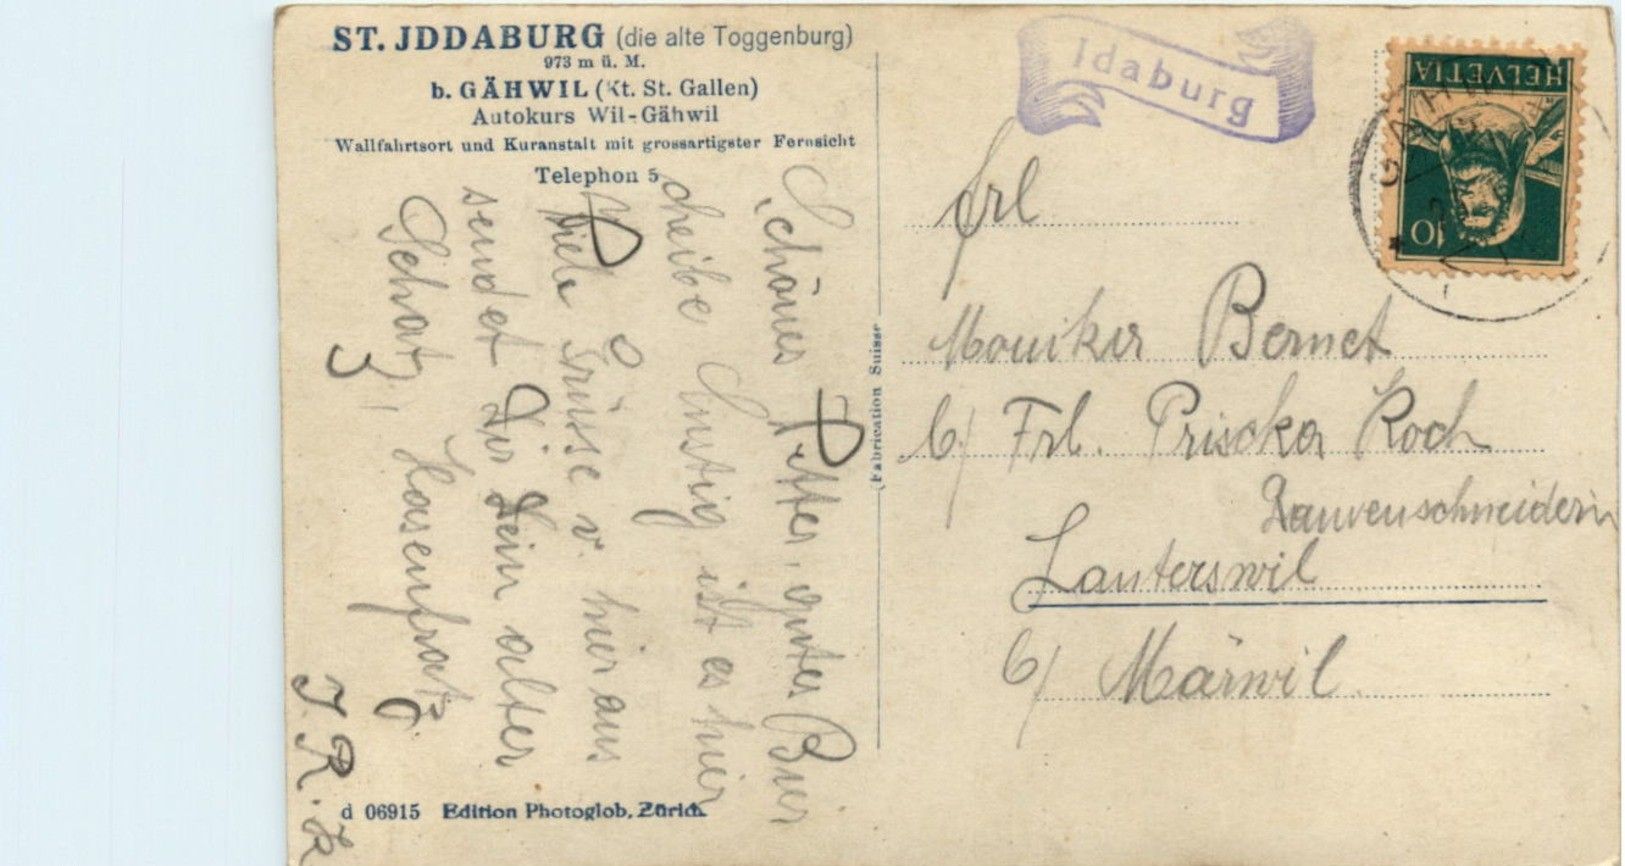 ST. JDDABURG (die alte Toggenburg)
973 m ü. M.
b. GÄHWIL (Kt. St. Gallen)
Autokurs Wil-Gähwil
Wallfahrtsort und Kuranstalt mit grossartigster Fernsicht
Telephon 5
Schönes Wetter, gutes Bier
cheibe lustig ist es hier
Viele Grüsse v. hier aus
sendet Dir Dein alter
Schatz, Hasenfratz
J. R. K
Fabrication Suisse
Idaburg
HELVETIA
10
GÄHWIL
Frl
Monika Bernet
b/ Frl. Priska Koch
schneiderin
Lauterswil
b/ Märwil.
d 06915 Edition Photoglob, Zürich.